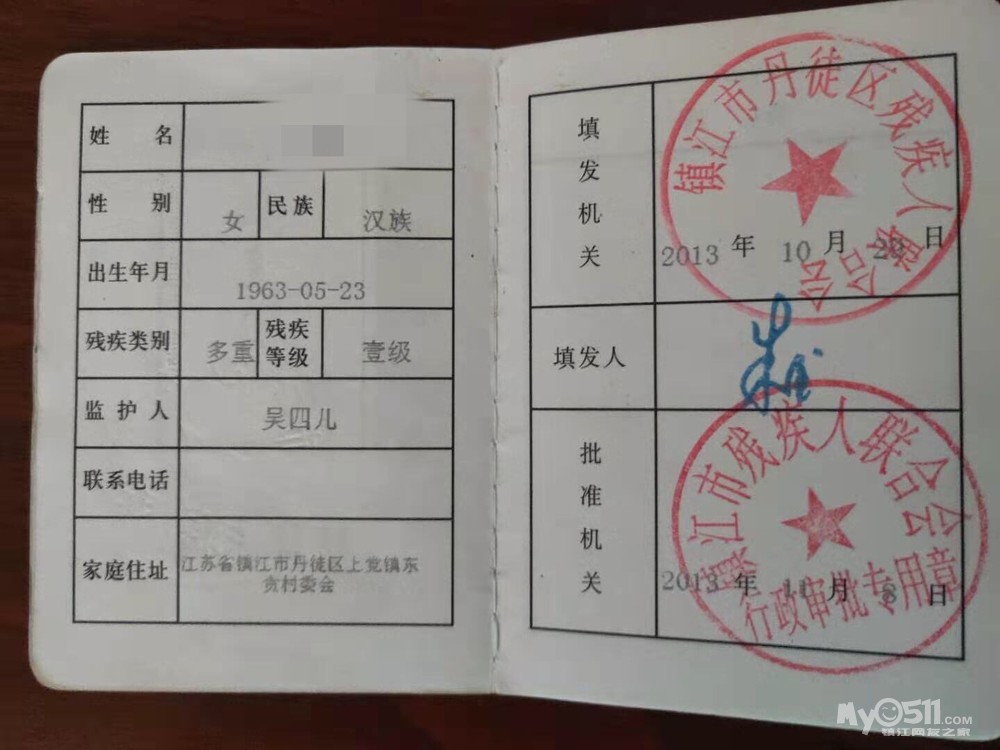 姓 名
性 别 女 民族 汉族
出生年月 1963-05-23
残疾类别 多重 残疾等级 壹级
监护人 吴四儿
联系电话
家庭住址 江苏省镇江市丹徒区上党镇东
贡村委会
填发机关
镇江市丹徒区残疾人联合会
2013 年 10 月 28 日
填发人
批准机关
镇江市残疾人联合会
行政审批专用章
2013 年 11 月 8 日
My0511.com
镇江网友之家